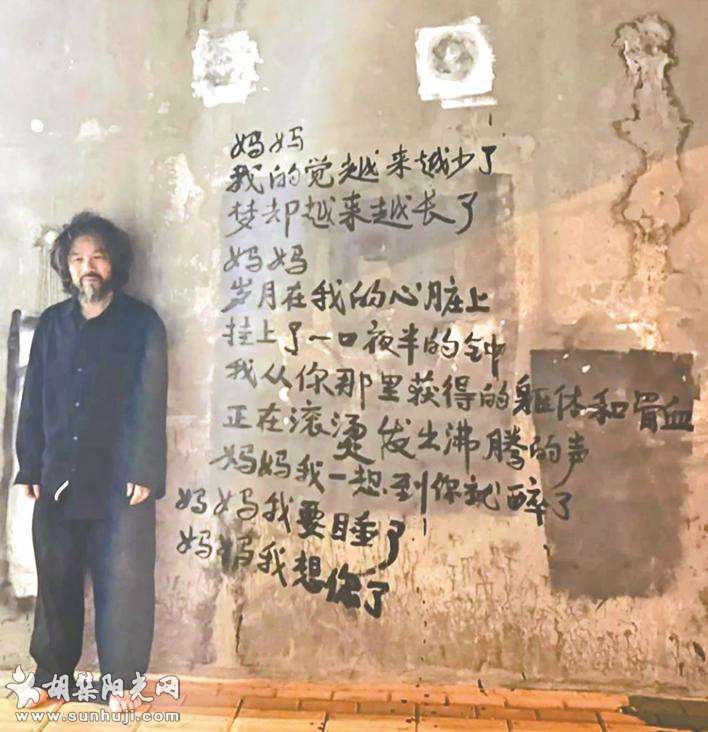 妈妈
我的觉越来越少了
梦却越来越长了
妈妈
岁月在我的心脏上
挂上了一口夜半的钟
我从你那里获得的躯体和骨血
正在滚烫发出沸腾的声
妈妈我一想到你就醉了
妈妈我要睡了
妈妈我想你了
胡集阳光网
www.sunhuji.com